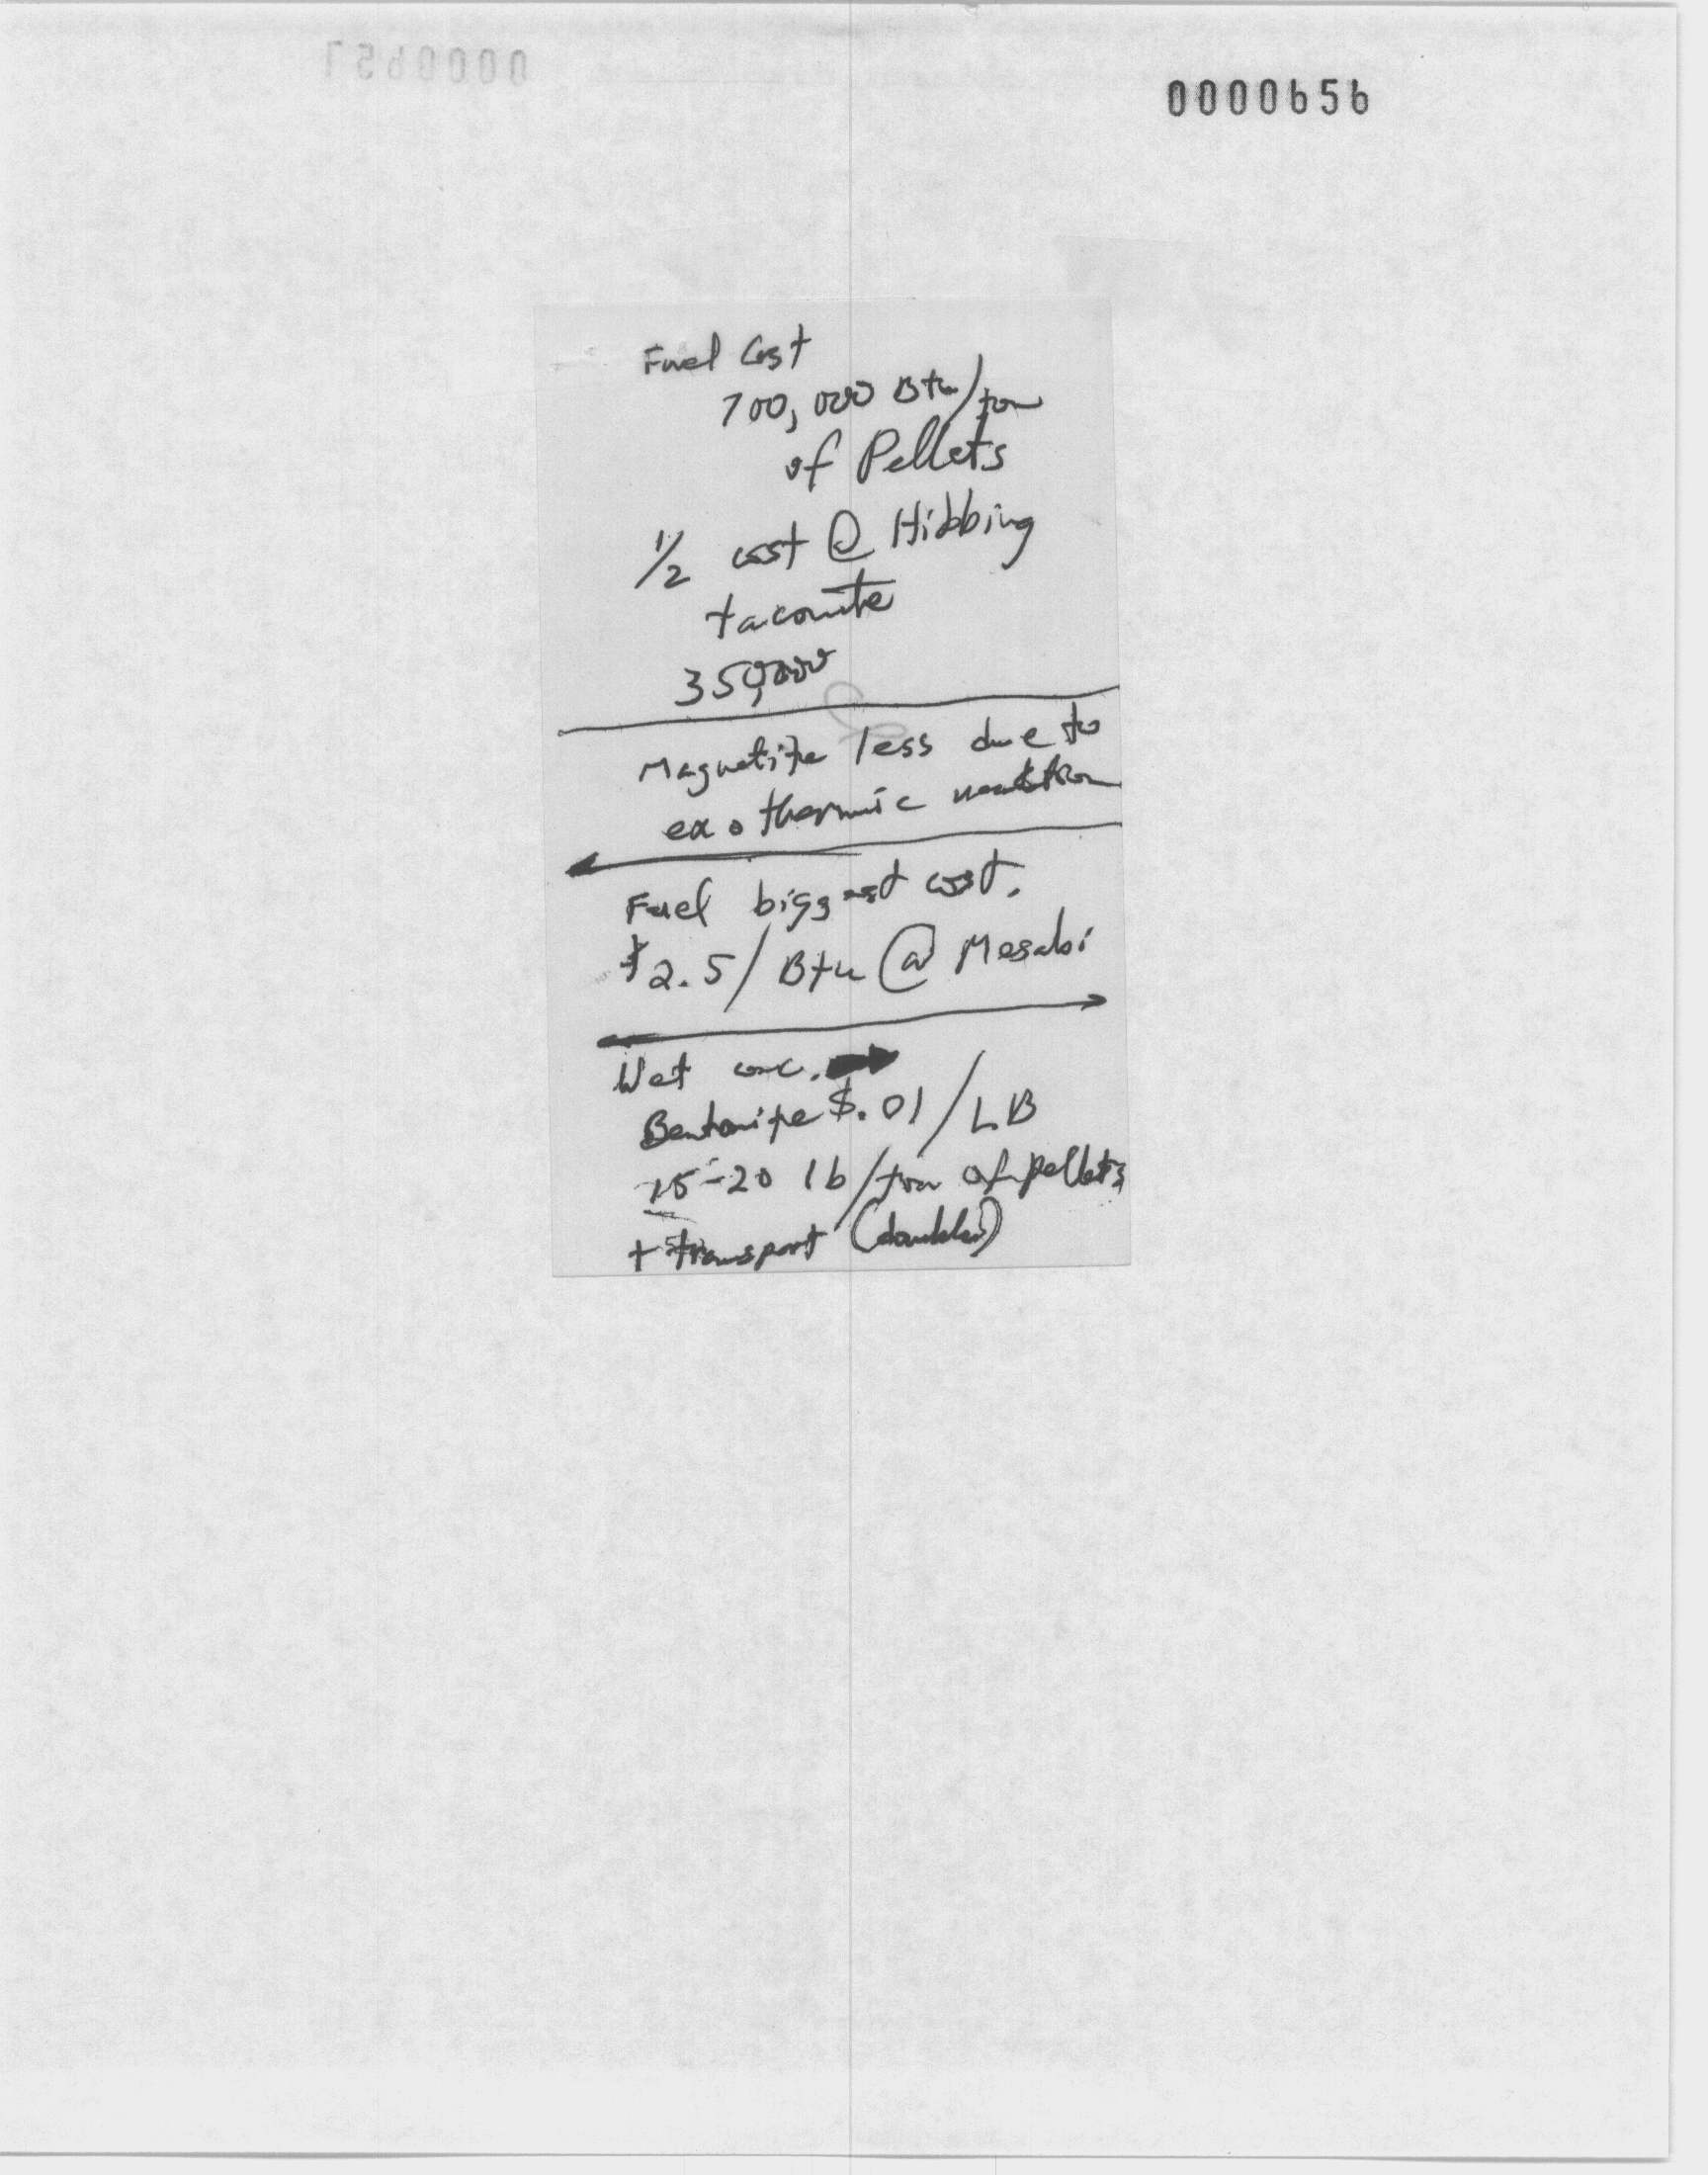 0000656
Fuel Cost
700,000 Btu/ton
of Pellets
1/2 cost @ Hibbing
taconite
350,000
Magnetite less due to
exothermic reaction
Fuel biggest cost.
$2.5/Btu @ Mesabi
Wet conc.
Bentonite $.01/LB
15-20 lb/ton of pellets
+ transport (doubles)